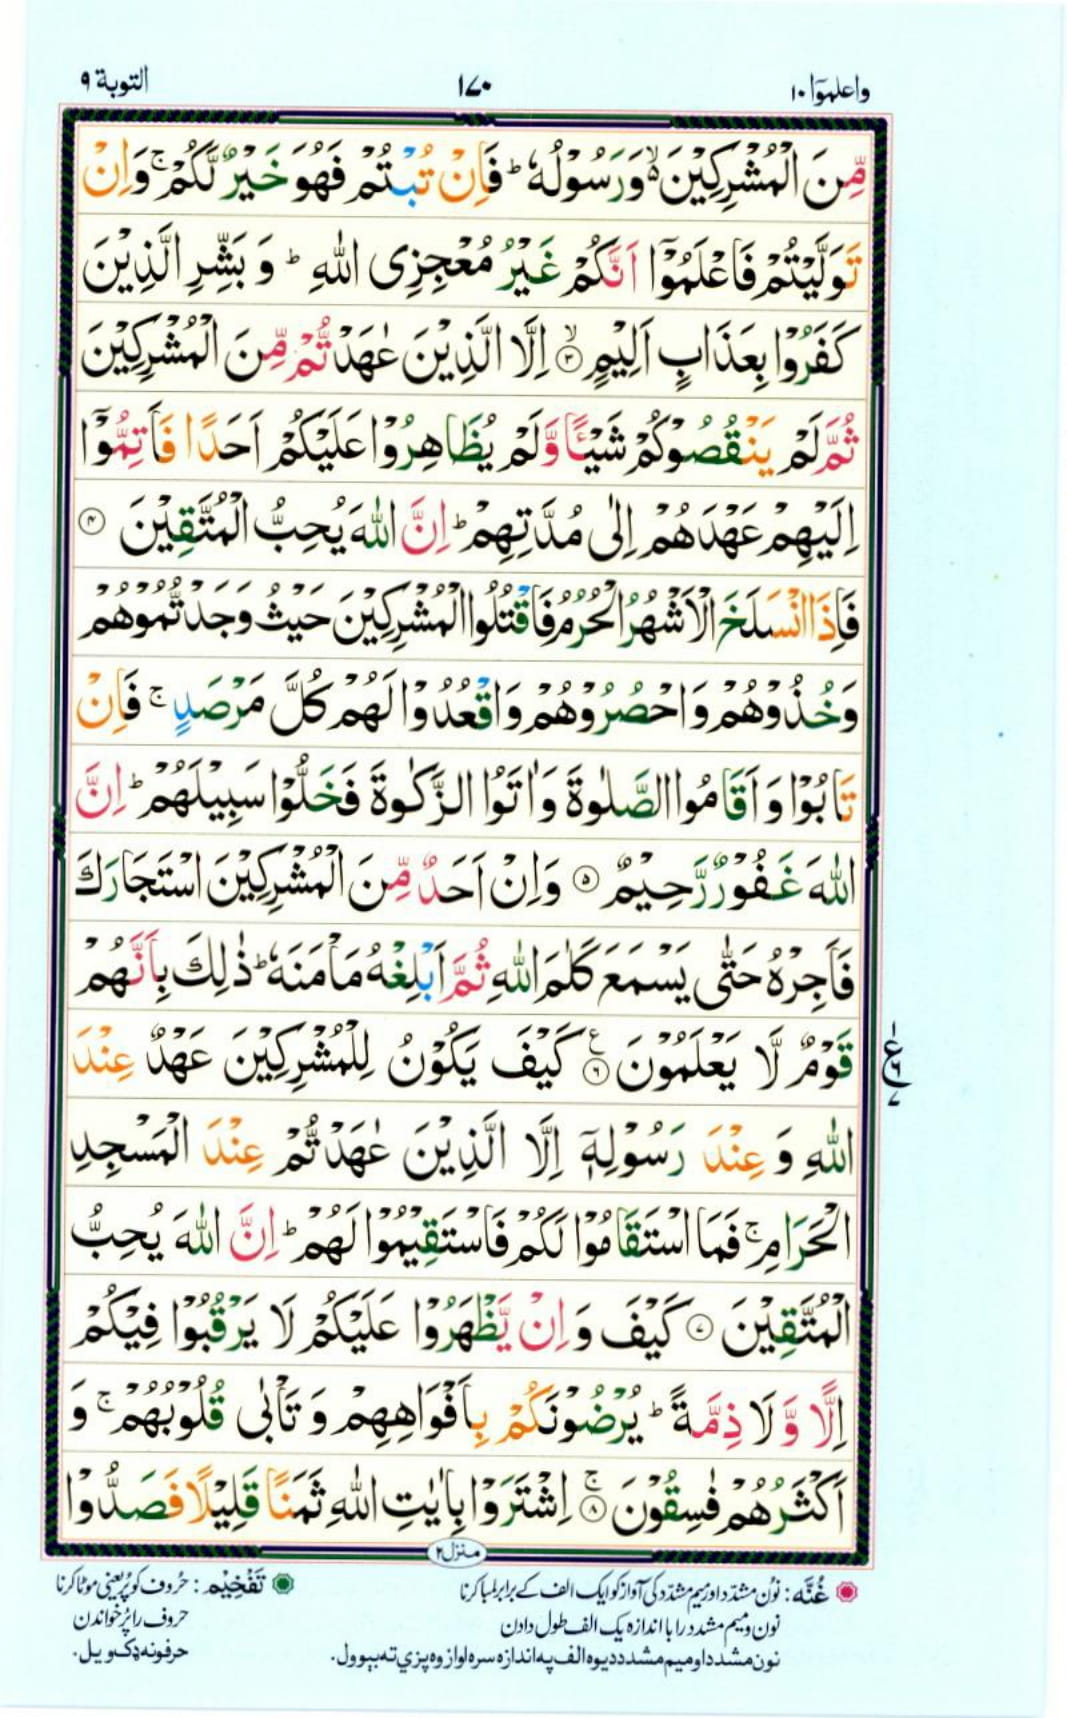 واعلموٓا ۱۰
۱۷۰
التوبة ۹
مِّنَ الْمُشْرِكِیْنَ ۙ۬ وَرَسُوْلُهٗ ؕ فَاِنْ تُبْتُمْ فَهُوَ خَیْرٌ لَّكُمْ ۚ وَاِنْ
تَوَلَّیْتُمْ فَاعْلَمُوْۤا اَنَّكُمْ غَیْرُ مُعْجِزِی اللّٰهِ ؕ وَ بَشِّرِ الَّذِیْنَ
كَفَرُوْا بِعَذَابٍ اَلِیْمٍ ۙ۝۳ اِلَّا الَّذِیْنَ عٰهَدْتُّمْ مِّنَ الْمُشْرِكِیْنَ
ثُمَّ لَمْ یَنْقُصُوْكُمْ شَیْـًٔا وَّلَمْ یُظَاهِرُوْا عَلَیْكُمْ اَحَدًا فَاَتِمُّوْۤا
اِلَیْهِمْ عَهْدَهُمْ اِلٰی مُدَّتِهِمْ ؕ اِنَّ اللّٰهَ یُحِبُّ الْمُتَّقِیْنَ ۝۴
فَاِذَا انْسَلَخَ الْاَشْهُرُ الْحُرُمُ فَاقْتُلُوا الْمُشْرِكِیْنَ حَیْثُ وَجَدْتُّمُوْهُمْ
وَخُذُوْهُمْ وَاحْصُرُوْهُمْ وَاقْعُدُوْا لَهُمْ كُلَّ مَرْصَدٍ ۚ فَاِنْ
تَابُوْا وَ اَقَامُوا الصَّلٰوةَ وَ اٰتَوُا الزَّكٰوةَ فَخَلُّوْا سَبِیْلَهُمْ ؕ اِنَّ
اللّٰهَ غَفُوْرٌ رَّحِیْمٌ ۝۵ وَاِنْ اَحَدٌ مِّنَ الْمُشْرِكِیْنَ اسْتَجَارَكَ
فَاَجِرْهُ حَتّٰی یَسْمَعَ كَلٰمَ اللّٰهِ ثُمَّ اَبْلِغْهُ مَاْمَنَهٗ ؕ ذٰلِكَ بِاَنَّهُمْ
قَوْمٌ لَّا یَعْلَمُوْنَ ۠۝۶ كَیْفَ یَكُوْنُ لِلْمُشْرِكِیْنَ عَهْدٌ عِنْدَ
ع ۶ ۷
اللّٰهِ وَ عِنْدَ رَسُوْلِهٖۤ اِلَّا الَّذِیْنَ عٰهَدْتُّمْ عِنْدَ الْمَسْجِدِ
الْحَرَامِ ۚ فَمَا اسْتَقَامُوْا لَكُمْ فَاسْتَقِیْمُوْا لَهُمْ ؕ اِنَّ اللّٰهَ یُحِبُّ
الْمُتَّقِیْنَ ۝۷ كَیْفَ وَ اِنْ یَّظْهَرُوْا عَلَیْكُمْ لَا یَرْقُبُوْا فِیْكُمْ
اِلًّا وَّ لَا ذِمَّةً ؕ یُرْضُوْنَكُمْ بِاَفْوَاهِهِمْ وَ تَاْبٰی قُلُوْبُهُمْ ۚ وَ
اَكْثَرُهُمْ فٰسِقُوْنَ ۚ۝۸ اِشْتَرَوْا بِاٰیٰتِ اللّٰهِ ثَمَنًا قَلِیْلًا فَصَدُّوْا
منزل ۲
غُنّه: نُون مشدّد اور میم مشدّد کی آواز کو ایک الف کے برابر لمبا کرنا
نون و میم مشدد را با اندازه یک الف طول دادن
نون مشدد او میم مشدد دیوه الف په اندازه سره اواز وه پزي ته بیوول.
تَفْخِیْم: حُروف کو پُر یعنی موٹا کرنا
حروف را پُر خواندن
حرفونه ډک ویل.